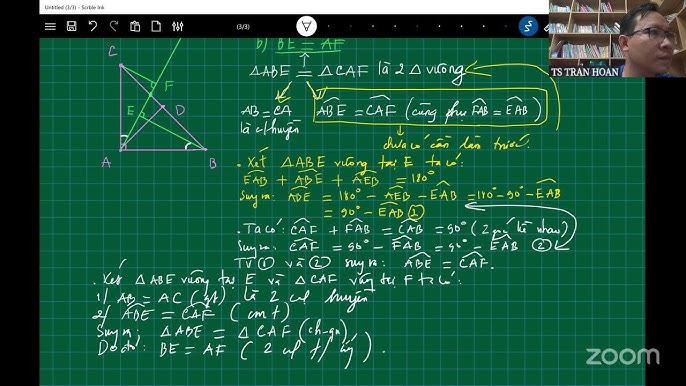 Untitled (3/3) - Scrble Ink
(3/3)
TS TRAN HOAN
b) BE = AF
△ABE = △CAF là 2 △ vuông
AB = CA
là c/huyền
ABE = CAF (cùng phụ FAB = EAB)
C
F
E
D
A
B
. Xét △ABE vuông tại E ta có:
EAB + ABE + AEB = 180°
Suy ra: ABE = 180° - AEB - EAB = 180° - 90° - EAB
= 90° - EAB (1)
. Ta có: CAF + FAB = CAB = 90° (2 góc kề nhau)
Suy ra: CAF = 90° - FAB = 90° - EAB (2)
Từ (1) và (2) suy ra: ABE = CAF.
. Xét △ABE vuông tại E và △CAF vuông tại F ta có:
1/ AB = AC (gt) là 2 cạnh huyền
2/ ABE = CAF (cmt)
Suy ra: △ABE = △CAF (ch-gn)
Do đó: BE = AF (2 cạnh t/ứng).
zoom